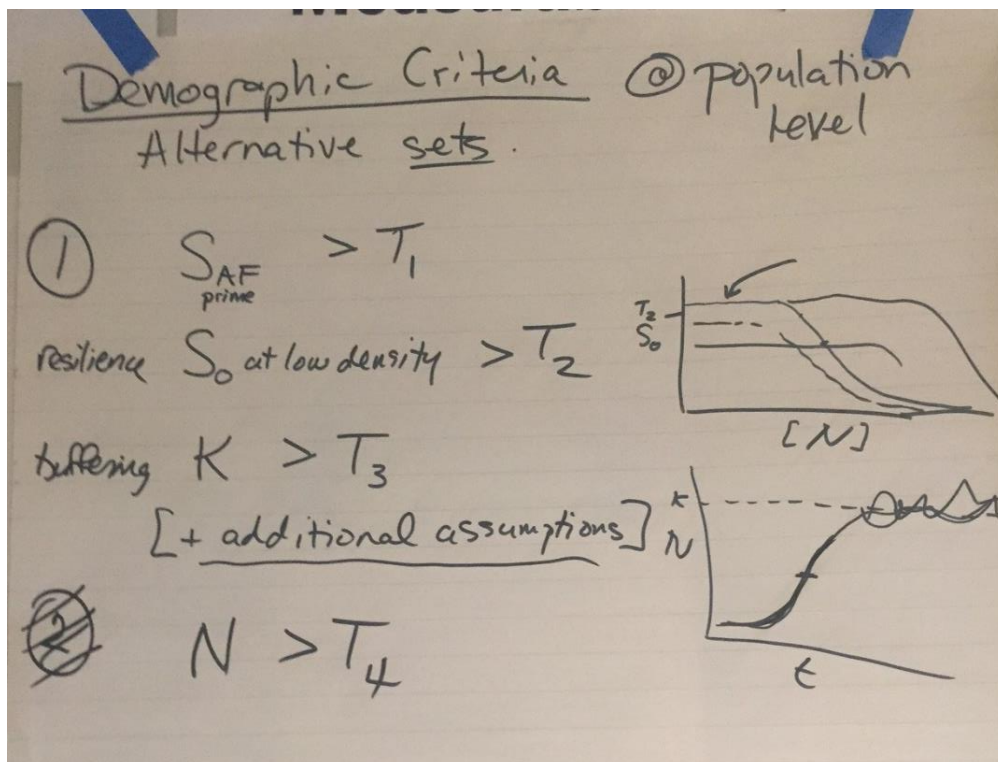 Demographic Criteria @ population level
Alternative sets.
① S_AF prime > T₁
resilience S₀ at low density > T₂
buffering K > T₃
[+ additional assumptions]
② N > T₄
T₂
S₀
[N]
K
N
t